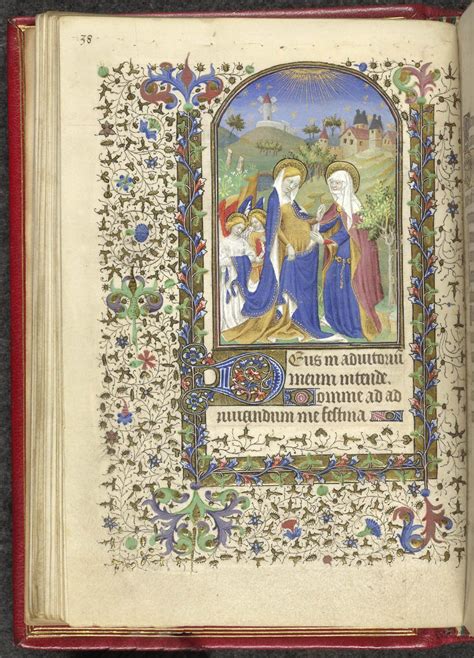 38
Deus in adiutoriu
meum intende.
Domine ad ad
iuuandum me festina